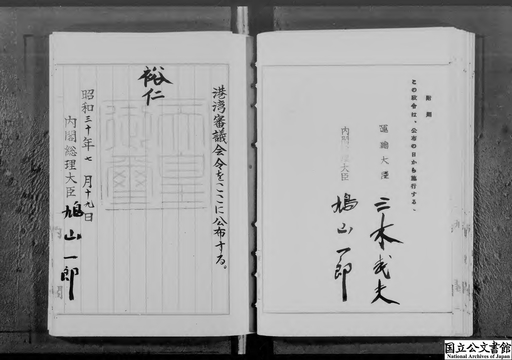 附則
この政令は、公布の日から施行する。
運輸大臣 三木武夫
内閣総理大臣 鳩山一郎
港湾審議会令をここに公布する。
裕仁
昭和三十年七月十九日
内閣総理大臣 鳩山一郎
国立公文書館
National Archives of Japan